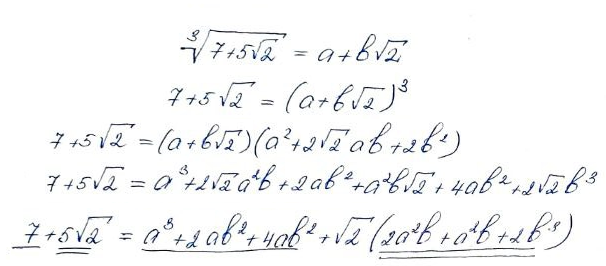 ∛(7+5√2) = a+b√2
7+5√2 = (a+b√2)³
7+5√2 = (a+b√2)(a²+2√2ab+2b²)
7+5√2 = a³+2√2a²b+2ab²+a²b√2+4ab²+2√2b³
7+5√2 = a³+2ab²+4ab²+√2(2a²b+a²b+2b³)